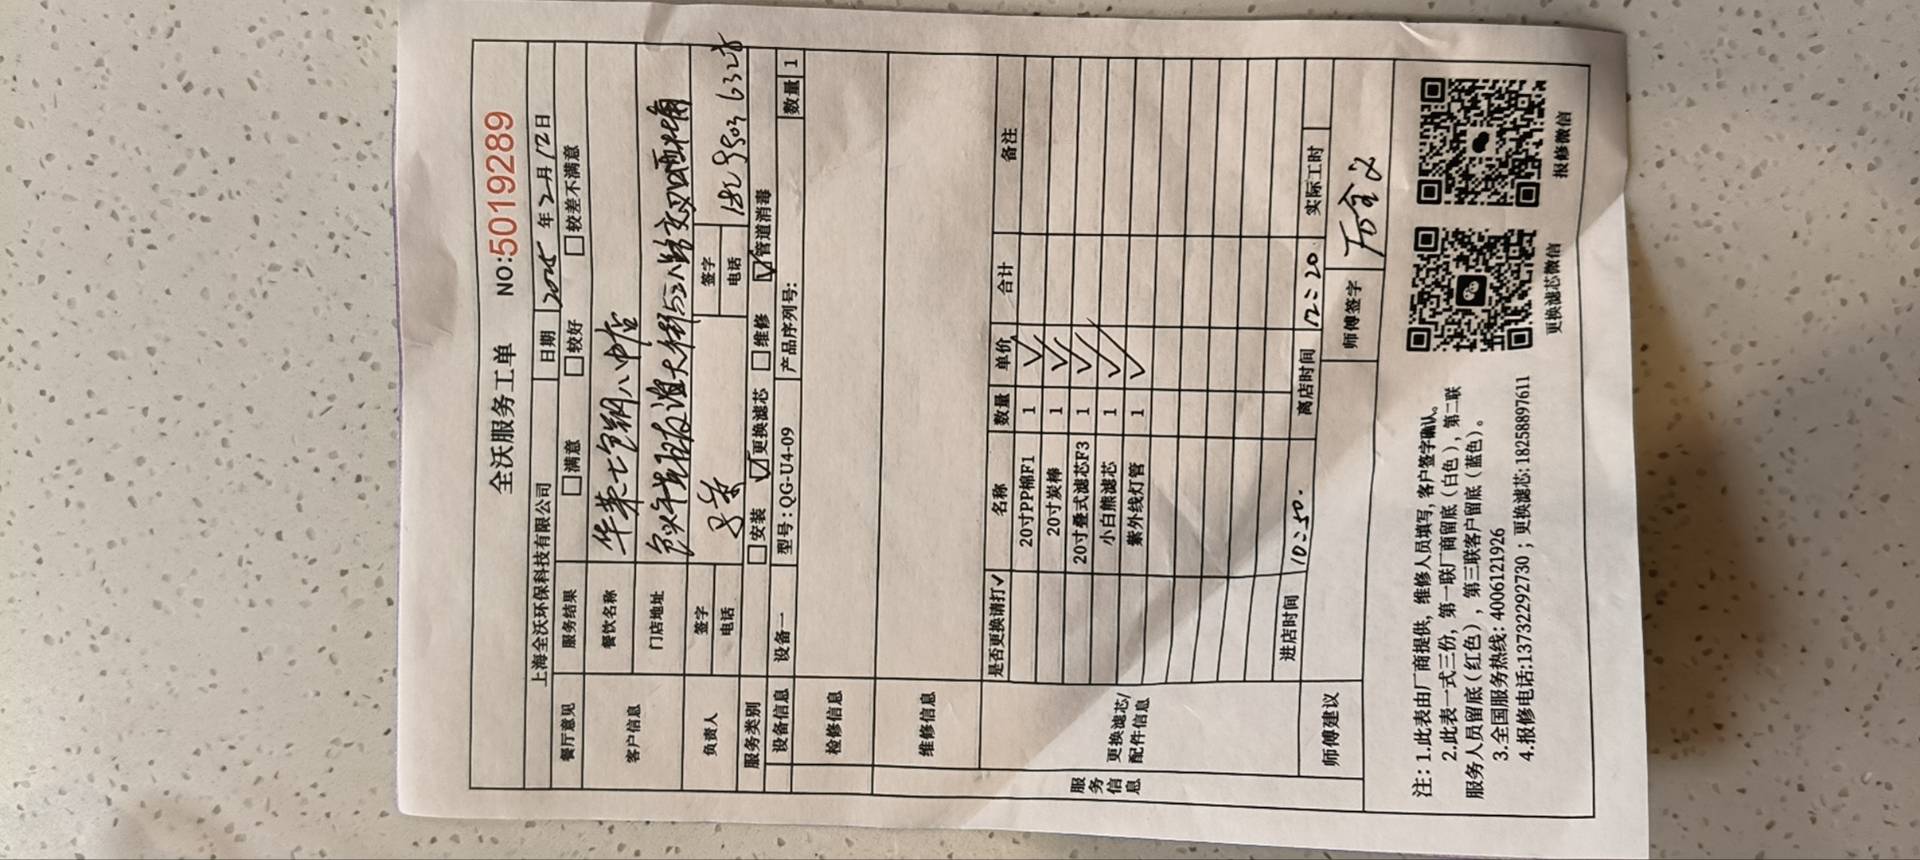 全沃服务工单 NO:5019289
上海全沃环保科技有限公司 日期 2025年2月12日
餐厅意见 服务结果 □满意 □较好 □较差不满意
客户信息 餐饮名称 华莱士
门店地址 大街与 路交叉西北角
负责人 签字 签字
电话 电话
服务类别 □安装 ☑更换滤芯 □维修 ☑管道消毒
设备信息 设备一 型号:QG-U4-09 产品序列号: 数量 1
检修信息
维修信息
服务信息
更换滤芯/配件信息
是否更换请打✓ 名称 数量 单价 合计 备注
20寸PP棉F1 1 ✓
20寸炭棒 1 ✓
20寸叠式滤芯F3 1 ✓
小白熊滤芯 1 ✓
紫外线灯管 1 ✓
进店时间 10:50. 离店时间 12:20 实际工时
师傅建议 师傅签字
注:1.此表由厂商提供,维修人员填写,客户签字确认。
2.此表一式三份,第一联厂商留底(白色),第二联
服务人员留底(红色),第三联客户留底(蓝色)。
3.全国服务热线:4006121926
4.报修电话:13732292730;更换滤芯:18258897611
更换滤芯微信 报修微信